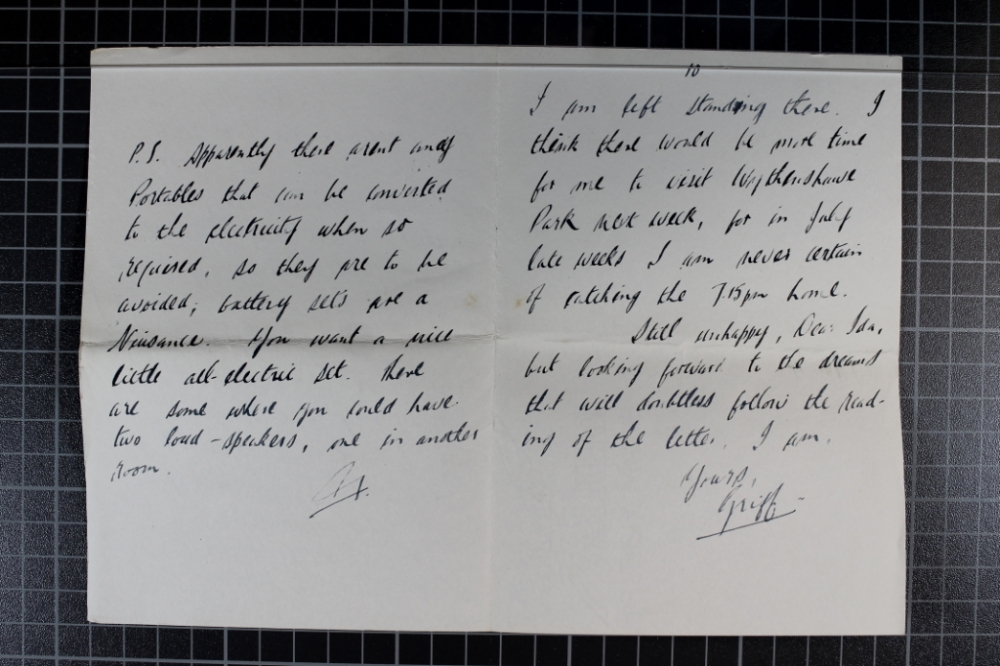 P.S. Apparently there arent any
Portables that can be converted
to the electricity when so
required, so they are to be
avoided; battery sets are a
Niusance. You want a nice
little all-electric set. there
are some where you could have
two loud-speakers, one in another
room.
10
I am left standing there. I
think there would be more time
for me to visit Wythenshawe
Park next week, for in July
late weeks I am never certain
of catching the 7.15pm home.
Still unhappy, Dear Ida,
but looking forward to the dreams
that will doubtless follow the read-
ing of the letter. I am,
Yours,
Griff